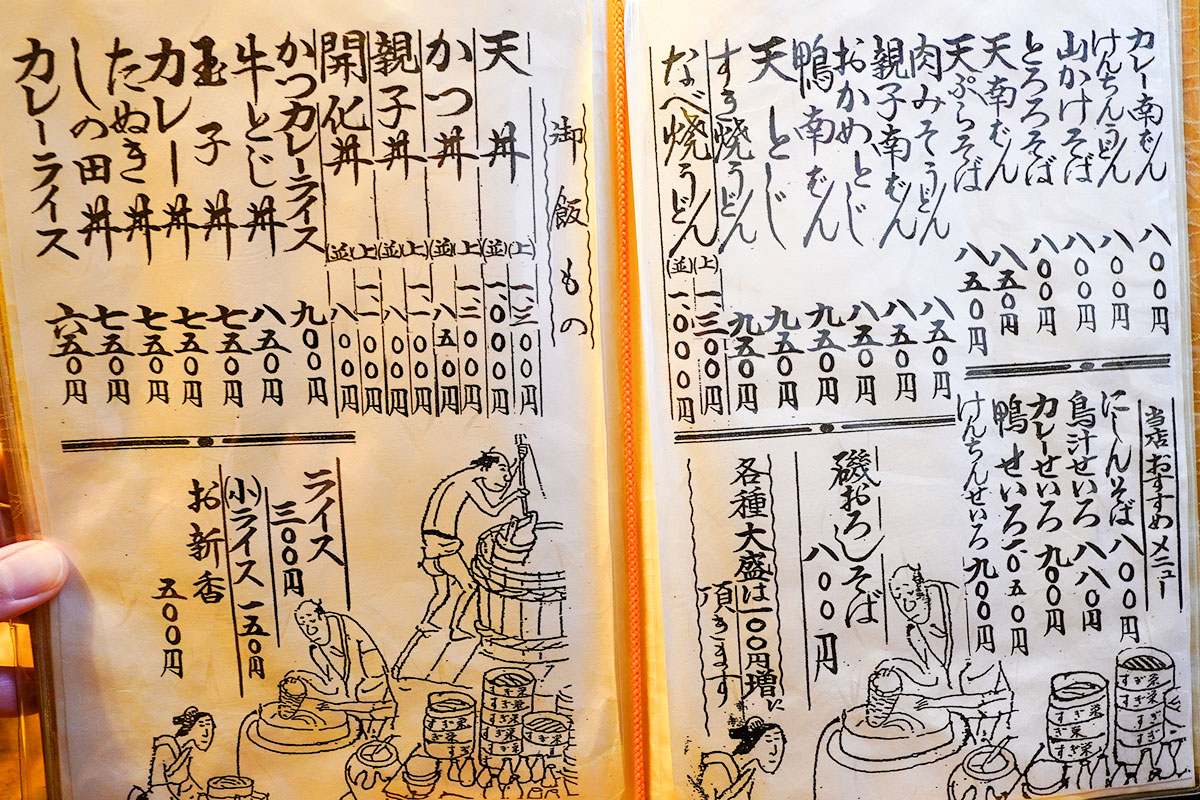 カレー南ばん 八〇〇円
けんちんうどん 八〇〇円
山かけそば 八〇〇円
とろろそば 八〇〇円
天南ばん 八五〇円
天ぷらそば 八五〇円
肉みそうどん 八五〇円
親子南ばん 八五〇円
おかめとじ 八五〇円
鴨南ばん 九五〇円
天とじ 九五〇円
すき焼うどん 九五〇円
なべ焼うどん (上) 一、三〇〇円
(並) 一、〇〇〇円
当店おすすめメニュー
にしんそば 八〇〇円
鳥汁せいろ 八八〇円
カレーせいろ 九〇〇円
鴨せいろ 一〇五〇円
けんちんせいろ 九〇〇円
磯おろしそば
八〇〇円
各種大盛は一〇〇円増に
頂きます
すぎ栄
すぎ栄
すぎ栄
すぎ栄
すぎ栄
御飯もの
天丼 (上) 一、三〇〇円
(並) 一、〇〇〇円
かつ丼 (上) 一、二〇〇円
(並) 八五〇円
親子丼 (上) 一、一〇〇円
(並) 八〇〇円
開化丼 (上) 一、一〇〇円
(並) 八〇〇円
かつカレーライス 九〇〇円
牛とじ丼 八五〇円
玉子丼 七五〇円
カレー丼 七五〇円
たぬき丼 七五〇円
しの田丼 七五〇円
カレーライス 六五〇円
ライス
三〇〇円
(小)ライス 一五〇円
お新香
五〇〇円
すぎ栄
すぎ栄
すぎ栄
すぎ栄
すぎ栄